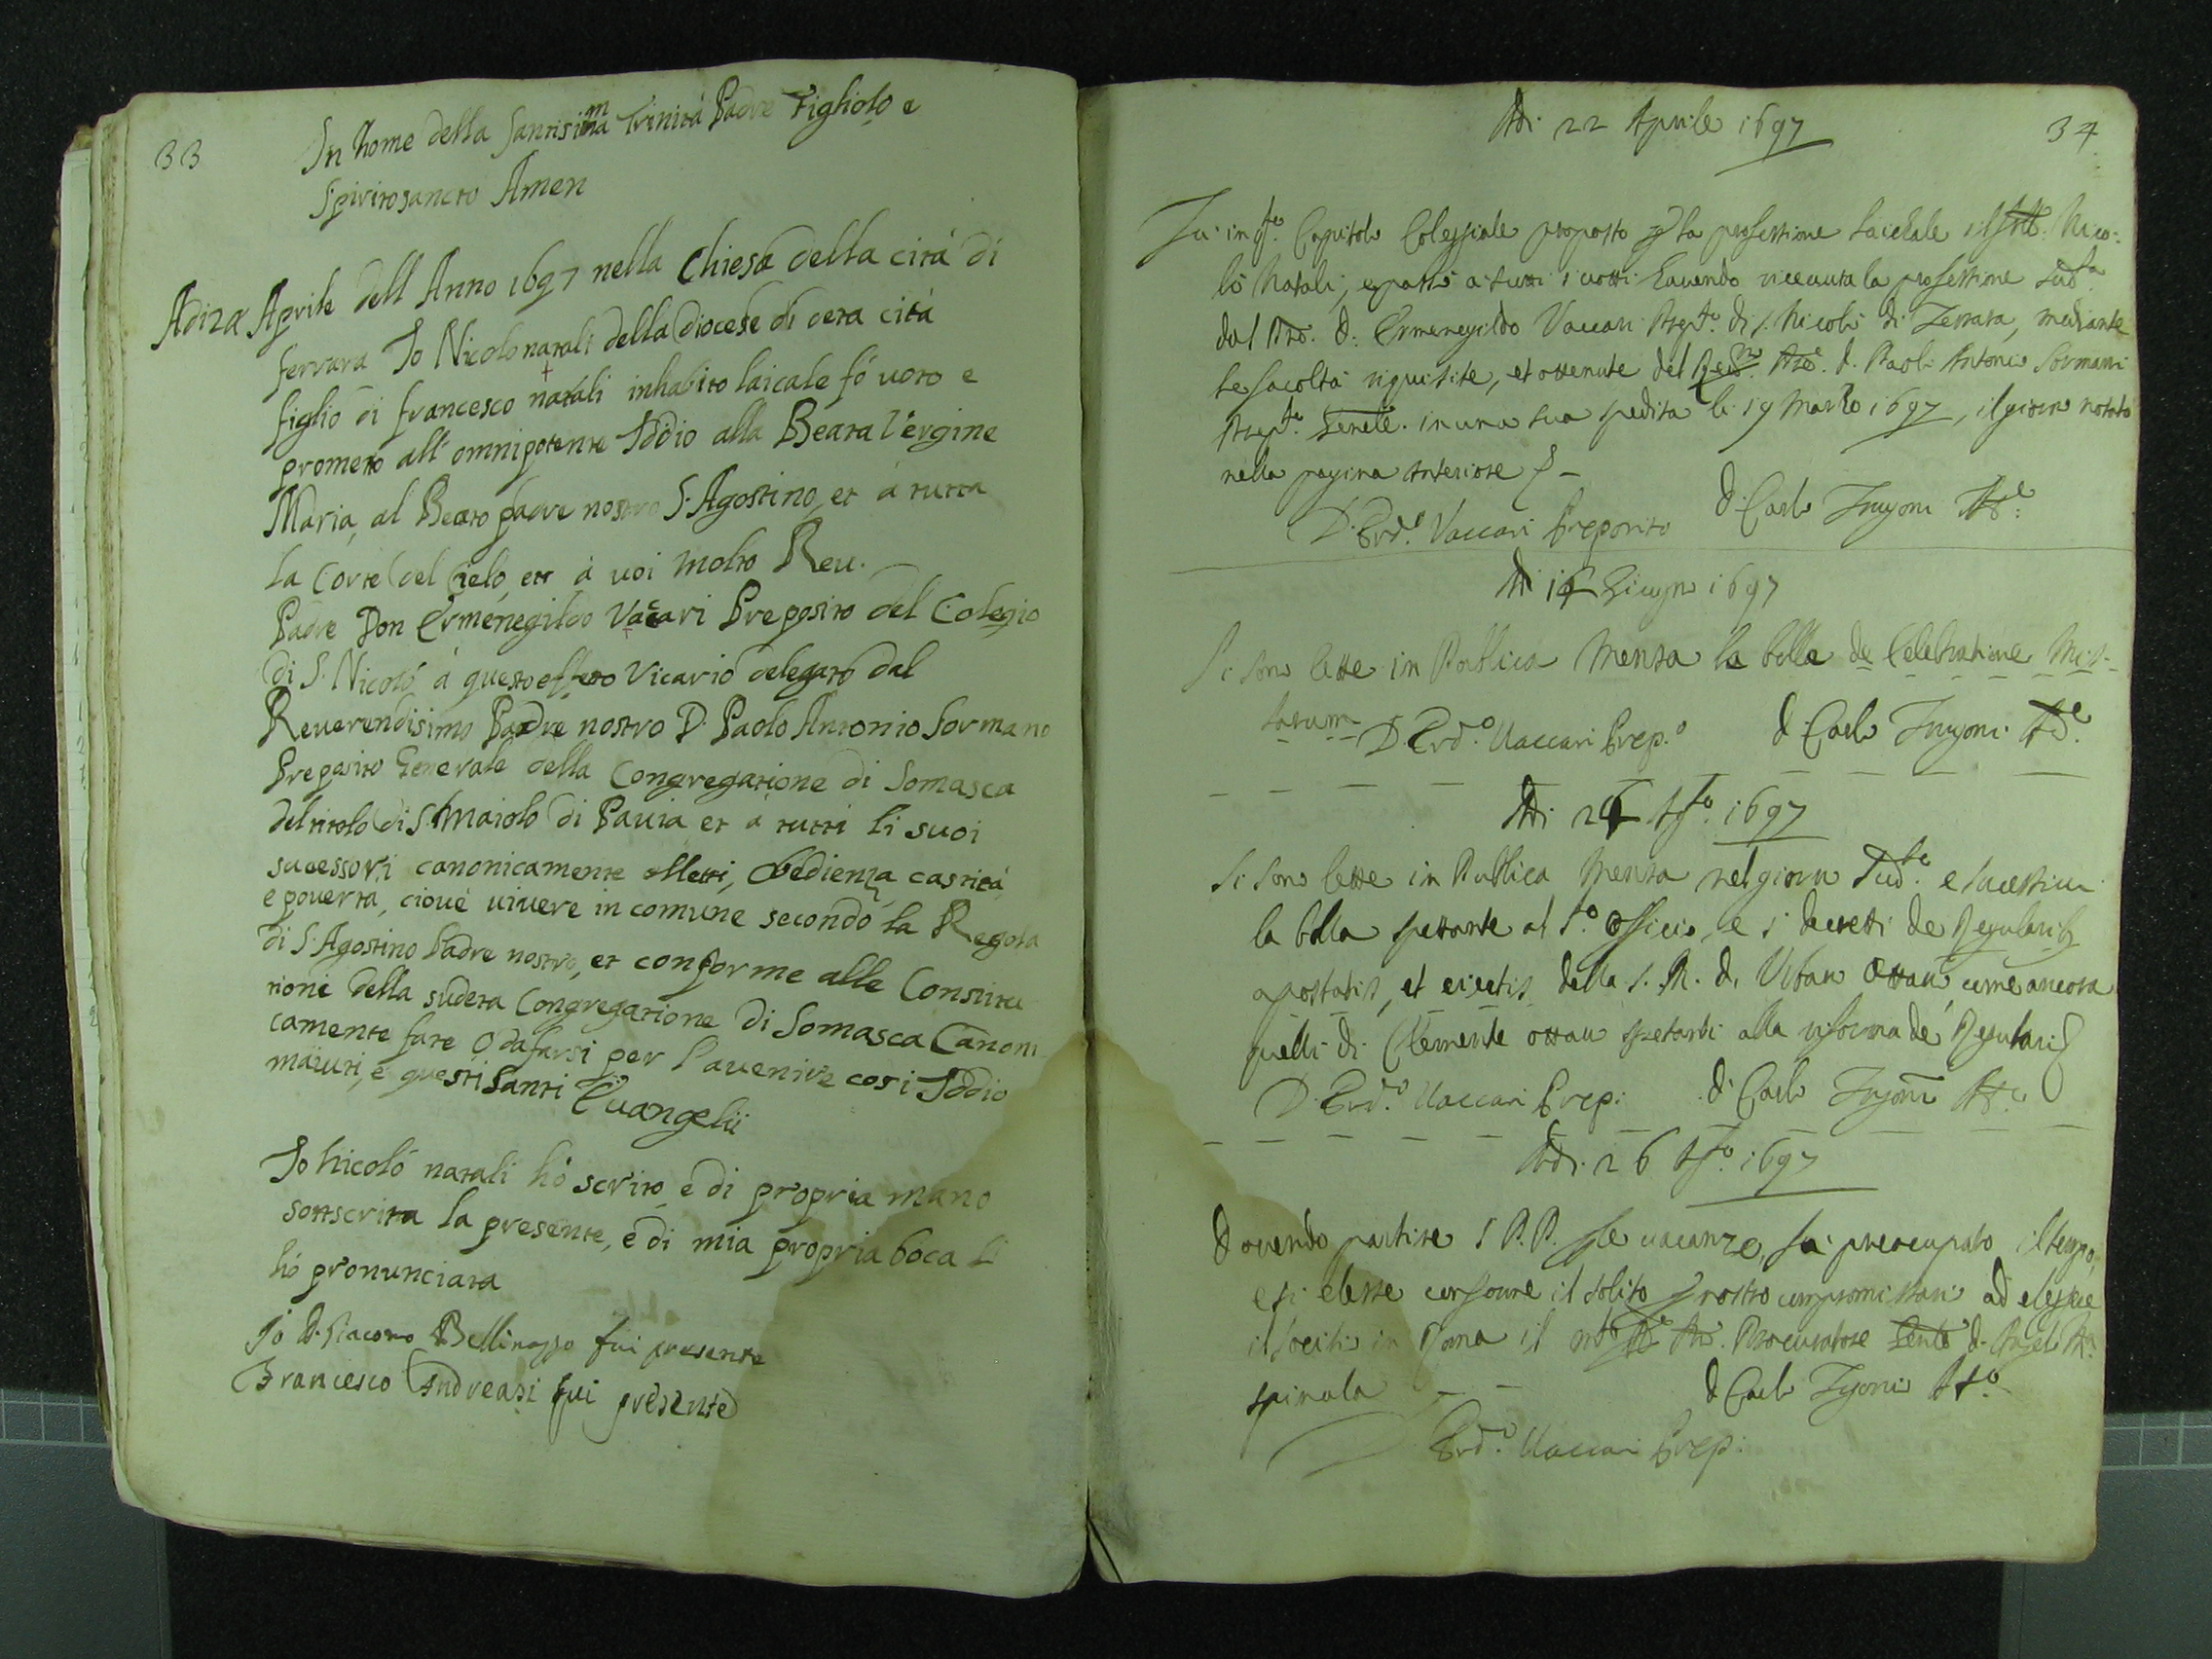 33
In Nome della Santisima Trinità Padre Figliolo e
Spiritosancto Amen
Adi 22 Aprile dell Anno 1697 nella Chiesa della cità di
ferrara Io Nicolo natali della diocese di deta cità
figlio di francesco natali inhabito laicale fò voto e
prometo all' omnipotente Iddio alla Beata Vergine
Maria, al Beato padre nostro S. Agostino, et à tutta
la Corte del Cielo, ett à voi Molto Reu.
Padre Don Ermenegildo Vaccari Preposito del Colegio
di S. Nicolò à questo effetto Vicario delegato dal
Reuerendisimo Padre nostro D. Paolo Antonio Sormano
Preposito Generale della Congregatione di Somasca
del titolo di S. Maiolo di Pauia et à tutti li suoi
sucessori canonicamente elletti, Obedienza castità
e pouertà, ciouè uiuere in comune secondo la Regola
di S. Agostino Padre nostro, et conforme alle Constitu
tioni della sudeta Congregatione di Somasca Canoni
camente fate o dafarsi per l'auenire così Iddio
maiuti, e questi Santi Euangelii
Io Nicolò natali hò scrito e di propria mano
sottscritta la presente, e di mia propria boca li
hò pronunciata
Io D. Giacomo Bellinasso fui presente
Francesco Andreasi fui presente
34
Adi 22 Aprile 1697
Fu in q.to Capitolo Colegiale proposto p la professione laichale il Nico:
lò Natali, e passò a tutti i uotti hauendo riceuuta la professione sud.ta
dal Pre. D. Ermenegildo Vaccari Prep.to di S. Nicolò di Ferrara, mediante
le facoltà riquisite, et ottenute del Reu.mo Pre. D. Paol. Antonio Sormani
Prep.to Genele. in una sua spedita li 19 Marzo 1697, il giorno notato
nella pagina anteriore
D. Erd.o Vaccari Preposito D. Carlo Frugoni
Adi Giugno 1697
Si sono lette in Publica Mensa la bolla de Celebratione Mis-
sarum D. Erd.o Vaccari Prep.o D. Carlo Frugoni
Adi Ag.to 1697
Si sono lette in Publica Mensa nel giorno sud.to e sucessiui
la bolla spettante al S.o Officio, e i decretti de Regularib
apostatis, et eiectis della S. M. di Urban Ottauo come ancora
quelli di Clemente ottauo spetanti alla riforma de Regulari
D. Erd.o Vaccari Prep: D. Carlo Frugoni
Adi 26 Ag.to 1697
Douendo partire i P.P. p le uacanze, fu preocupato il tempo,
e si elesse conforme il solito p nostro compromissario ad elegere
il Socio in Roma il Procuratore Genle D.
Spinola D. Carlo Frugoni
D. Erd.o Vaccari Prep: